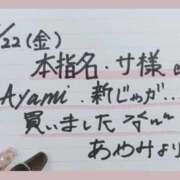 /22(金)
本指名・サ様
Ayami.新じゃが...
買いました
あやみより